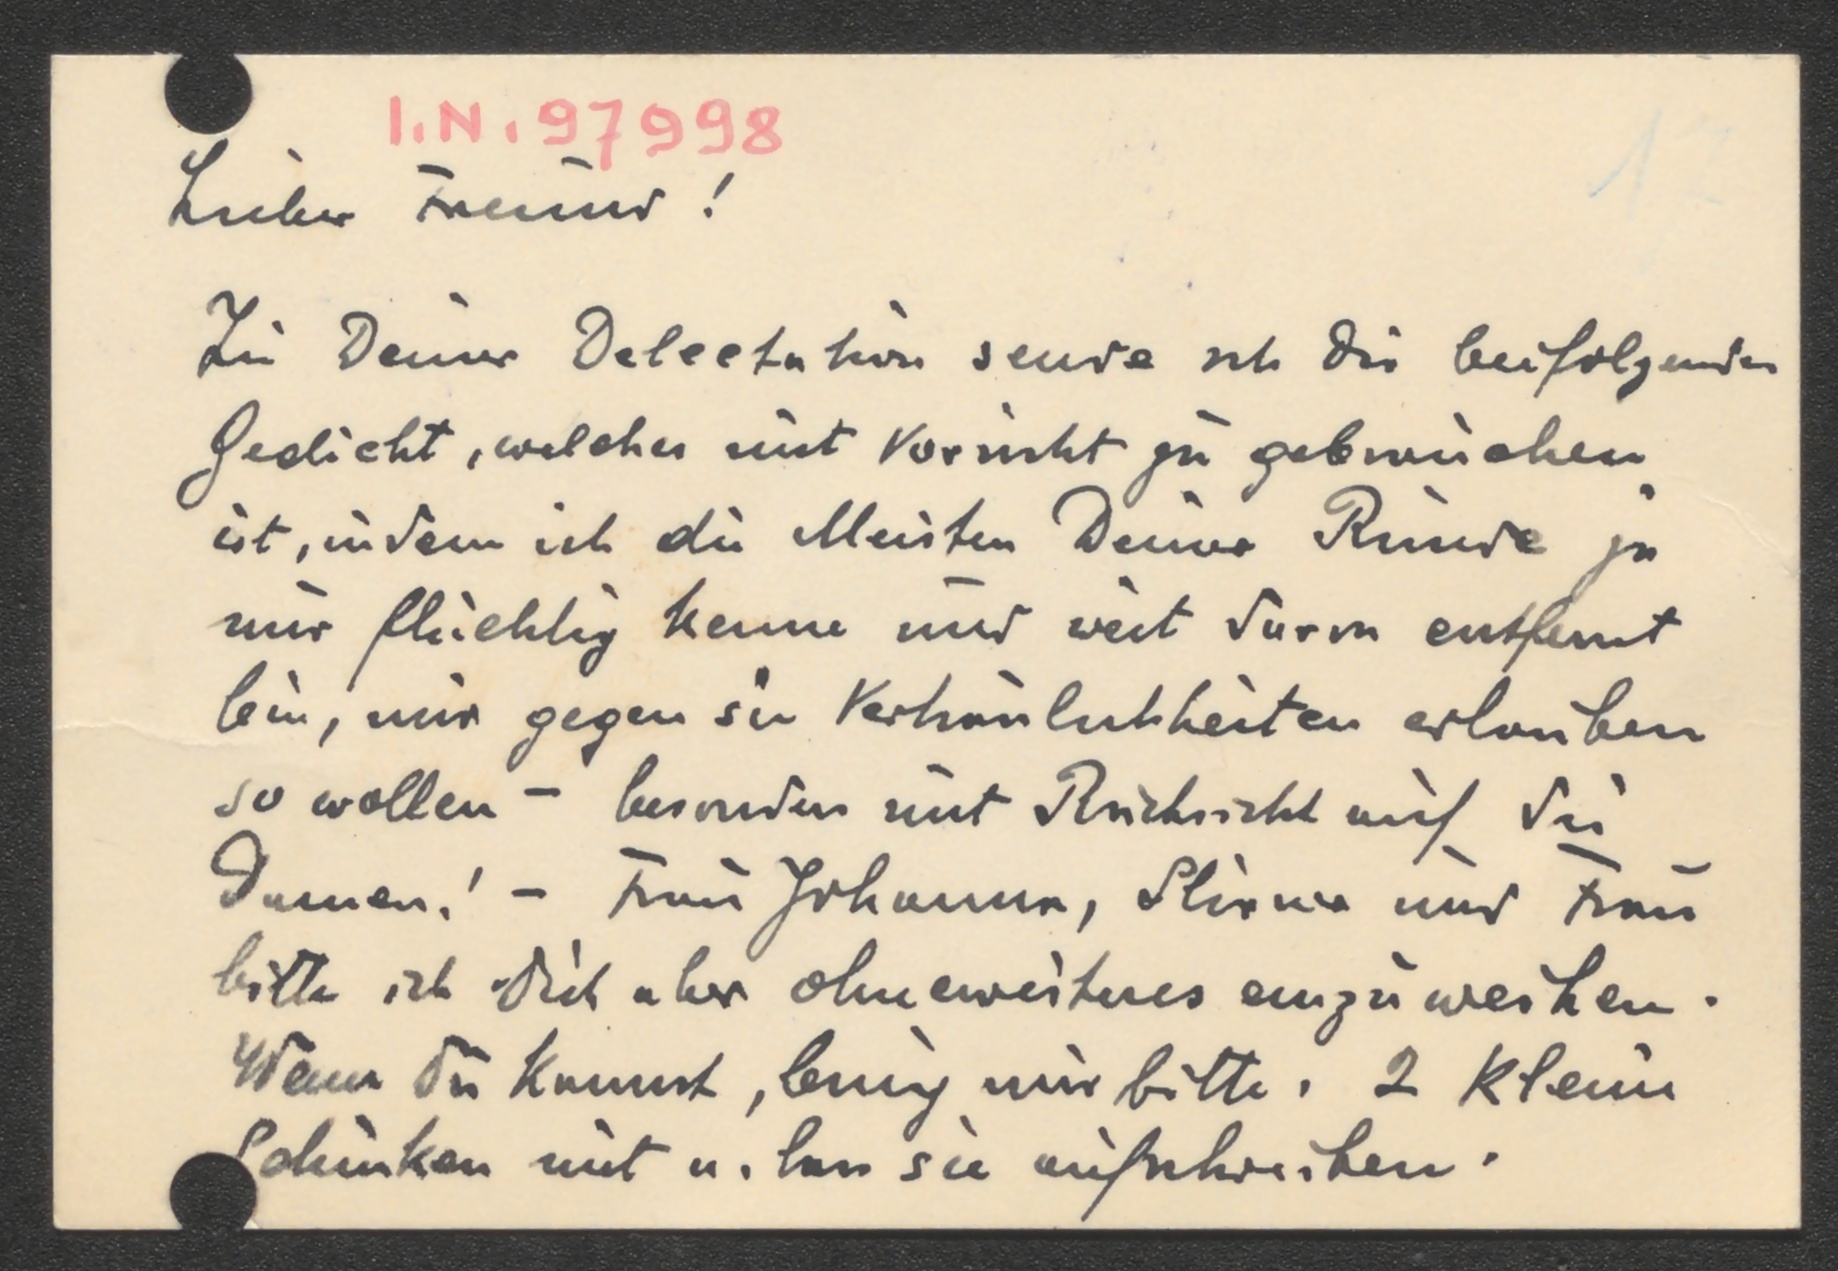 I.N. 97998
Lieber Freund!
Zu Deiner Delectation sende ich Dir beifolgendes
Gedicht, welches mit Vorsicht zu gebrauchen
ist, indem ich die Meisten Deiner Runde ja
nur flüchtig kenne und weit davon entfernt
bin, mir gegen sie Vertraulichkeiten erlauben
so wollen - besonders mit Rücksicht auf die
Damen! - Frau Johanna, und Frau
bitte ich Dich aber ohneweiteres einzuweihen.
Wenn Du kannst, bring mir bitte. 2 kleine
Schinken mit u. lass sie aufschreiben.